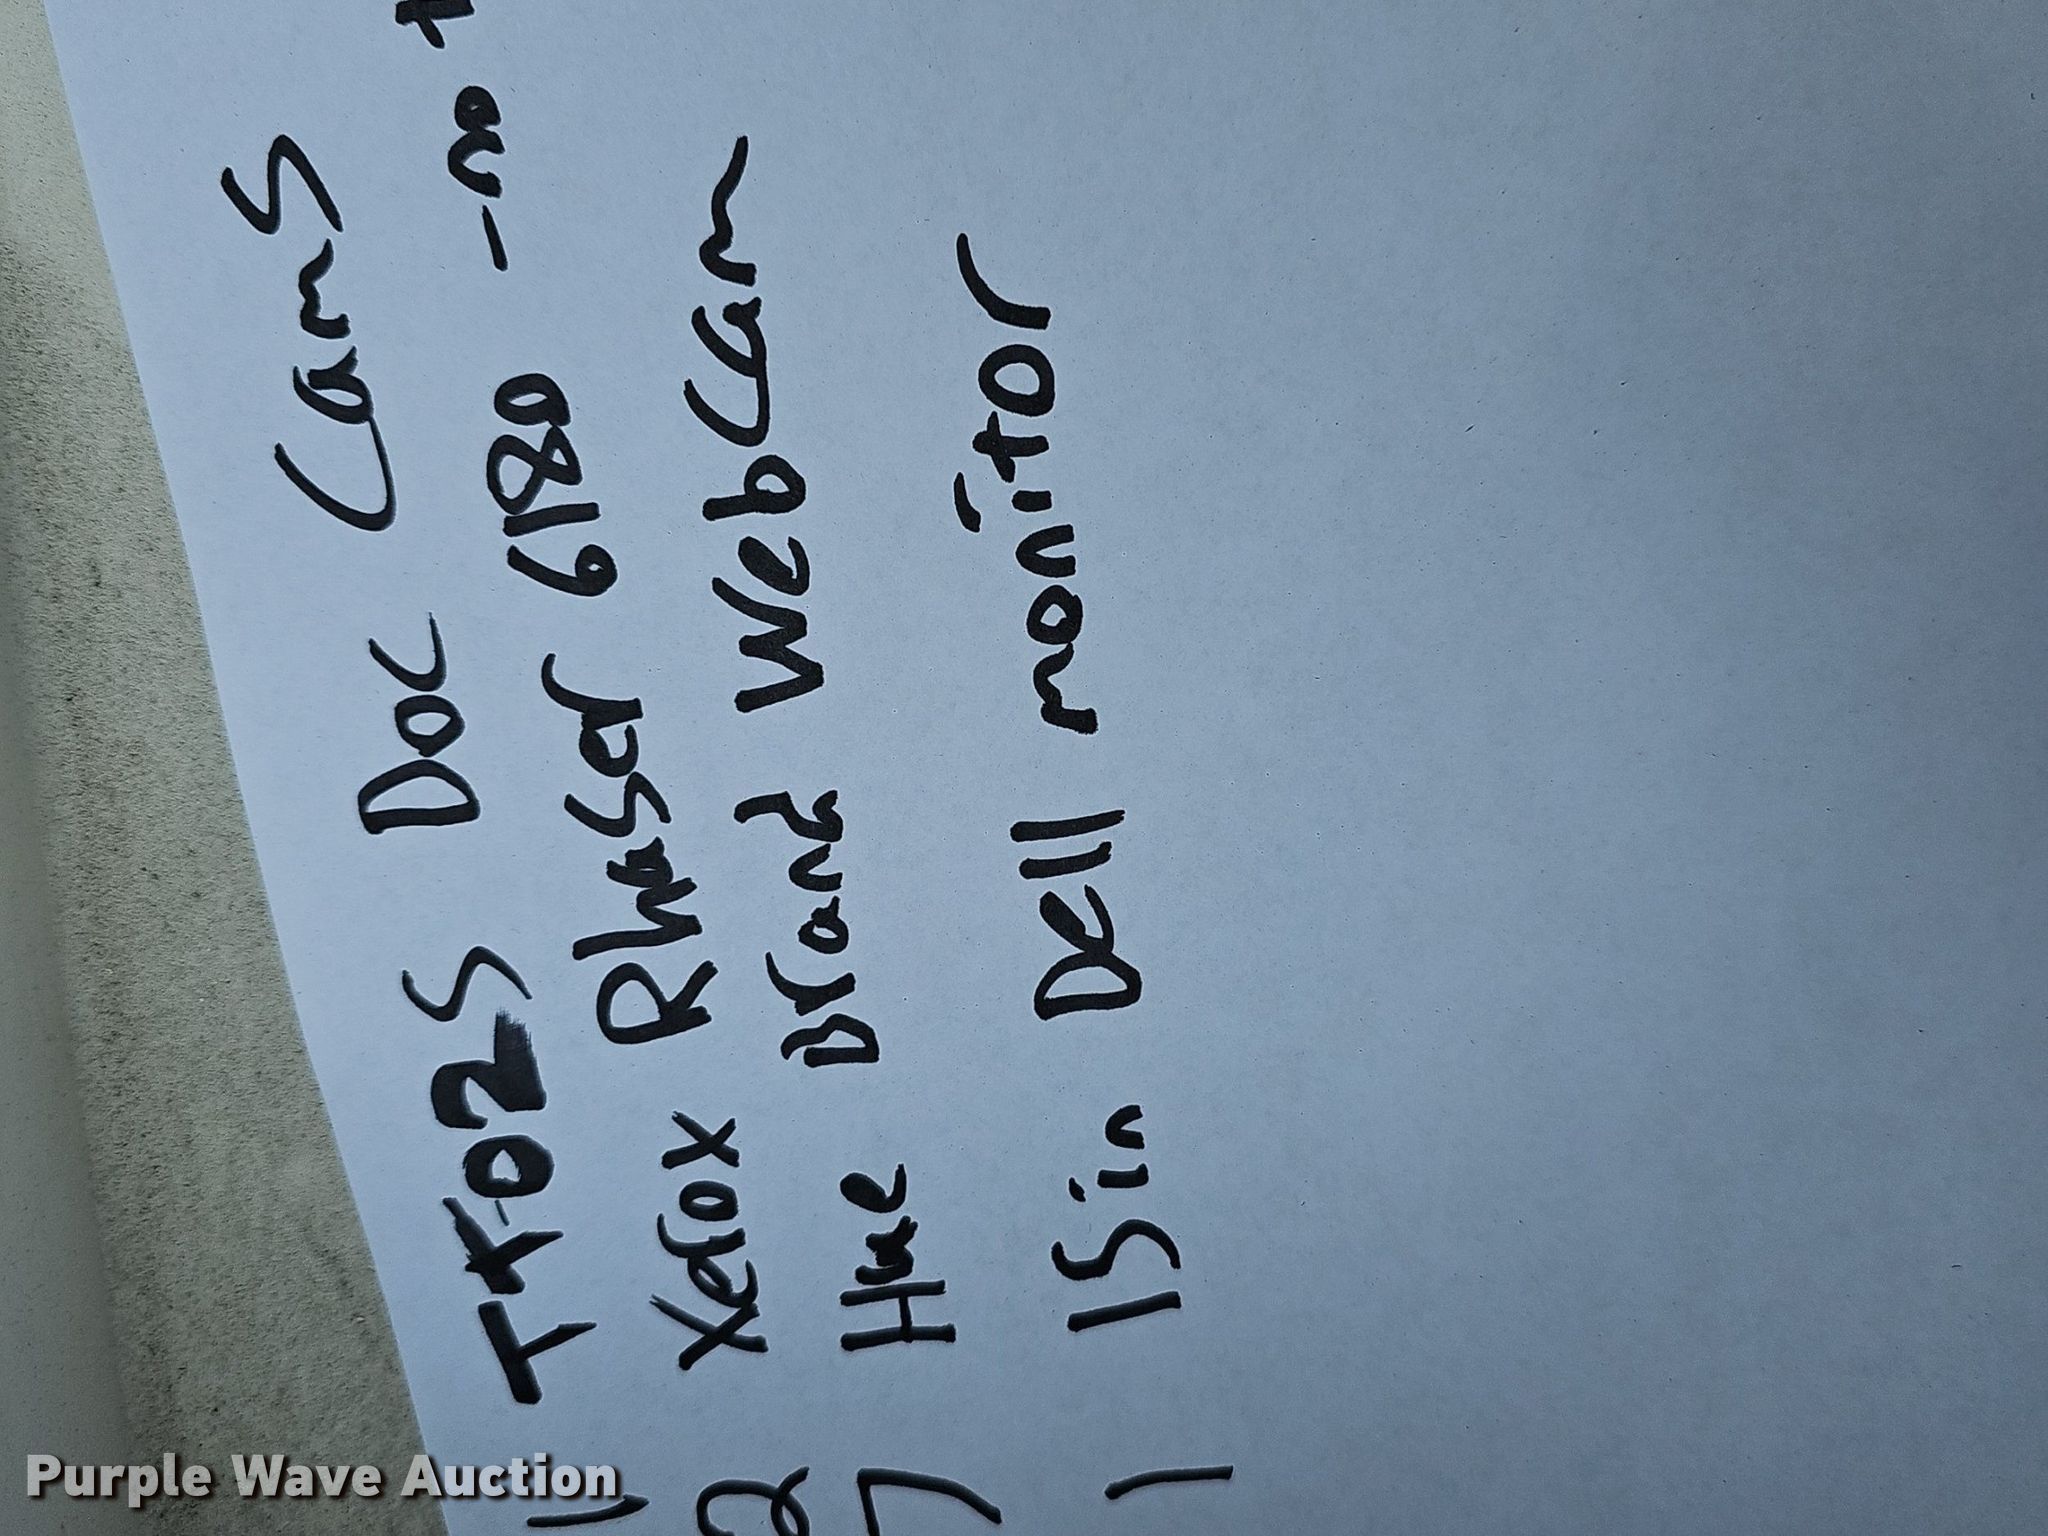 TT-02S Doc Cams
2 Xerox Phaser 6180 - no
7 Hue Brand WebCam
1 15in Dell monitor
Purple Wave Auction